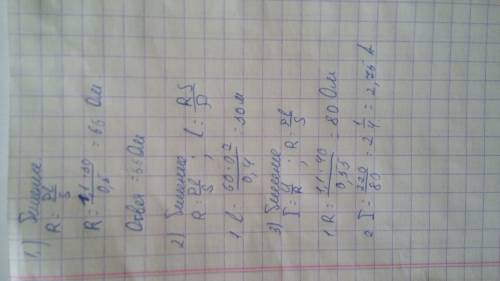 1.) Решение
R = ρl/S
R = 1,1·30/0,6 = 55 Ом
Ответ = 55 Ом
2) Решение:
R = ρl/S ; l = RS/ρ
1 l = 60·0,2/0,4 = 30 м
3) Решение
I = U/R ; R = ρl/S
1 R = 1,1·40/0,55 = 80 Ом
2 I = 220/80 = 2 = 2,75 А